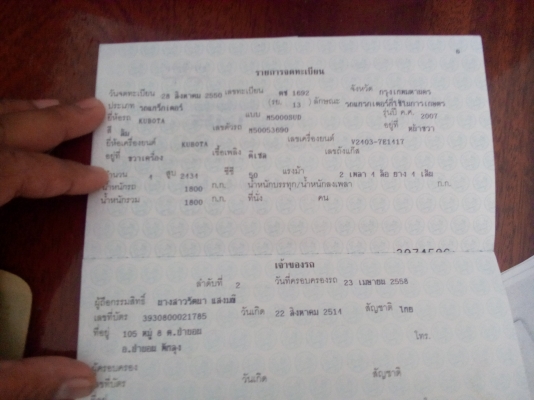 รายการจดทะเบียน
วันจดทะเบียน 28 สิงหาคม 2550 เลขทะเบียน ตช 1692 จังหวัด กรุงเทพมหานคร
ประเภท รถแทรกเตอร์ (รย. 13 ) ลักษณะ รถแทรกเตอร์ที่ใช้ในการเกษตร
ยี่ห้อรถ KUBOTA แบบ M5000SUD รุ่นปี ค.ศ. 2007
สี ส้ม เลขตัวรถ M50053690 อยู่ที่
ยี่ห้อเครื่องยนต์ KUBOTA เลขเครื่องยนต์ V2403-7E1417
อยู่ที่ เชื้อเพลิง ดีเซล เลขถังแก๊ส
จำนวน 4 สูบ 2434 ซีซี 50 แรงม้า 2 เพลา 4 ล้อ ยาง 4 เส้น
น้ำหนักรถ 1800 ก.ก. น้ำหนักบรรทุก/น้ำหนักลงเพลา ก.ก.
น้ำหนักรวม 1800 ก.ก. ที่นั่ง คน
เจ้าของรถ
ลำดับที่ 2 วันที่ครอบครองรถ 23 เมษายน 2558
ผู้ถือกรรมสิทธิ์
เลขที่บัตร 3930800021785 วันเกิด 22 สิงหาคม 2514 สัญชาติ ไทย
ที่อยู่ 105 หมู่ 8 ต.ป่าพยอม โทร.
อ.ป่าพยอม พัทลุง
ผู้ครอบครอง
เลขที่บัตร วันเกิด สัญชาติ